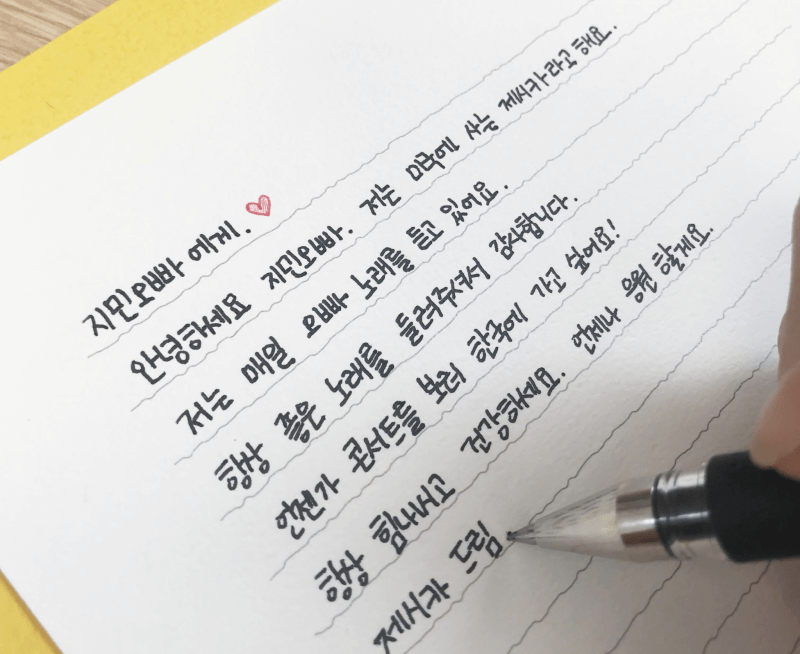 지민오빠 에게. ♥
안녕하세요 지민오빠. 저는 미국에 사는 제시카라고 해요.
저는 매일 오빠 노래를 듣고 있어요.
항상 좋은 노래를 들려주셔서 감사합니다.
언젠가 콘서트를 보러 한국에 가고 싶어요!
항상 힘내시고 건강하세요. 언제나 응원 할게요.
제시카 드림